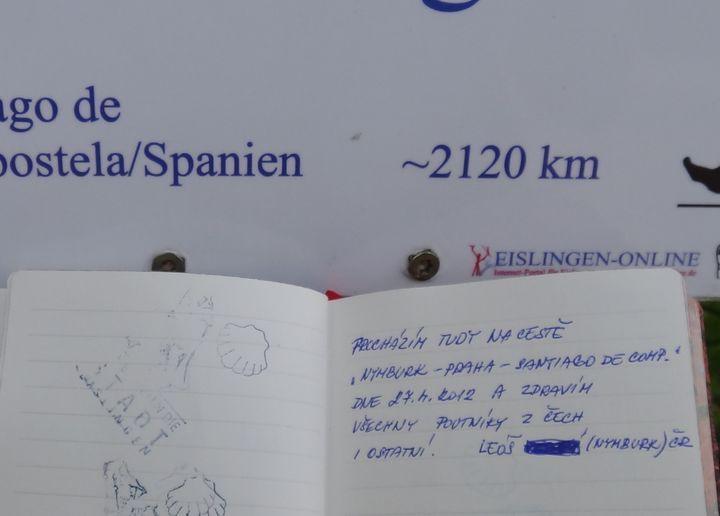 ago de
postela/Spanien ~2120 km
EISLINGEN-ONLINE
STADT
EISLINGEN
PROCHÁZÍM TUDY NA CESTĚ
„NYMBURK - PRAHA - SANTIAGO DE COMP."
DNE 27.4.2012 A ZDRAVÍM
VŠECHNY POUTNÍKY Z ČECH
I OSTATNÍ! LEOŠ (NYMBURK) ČR